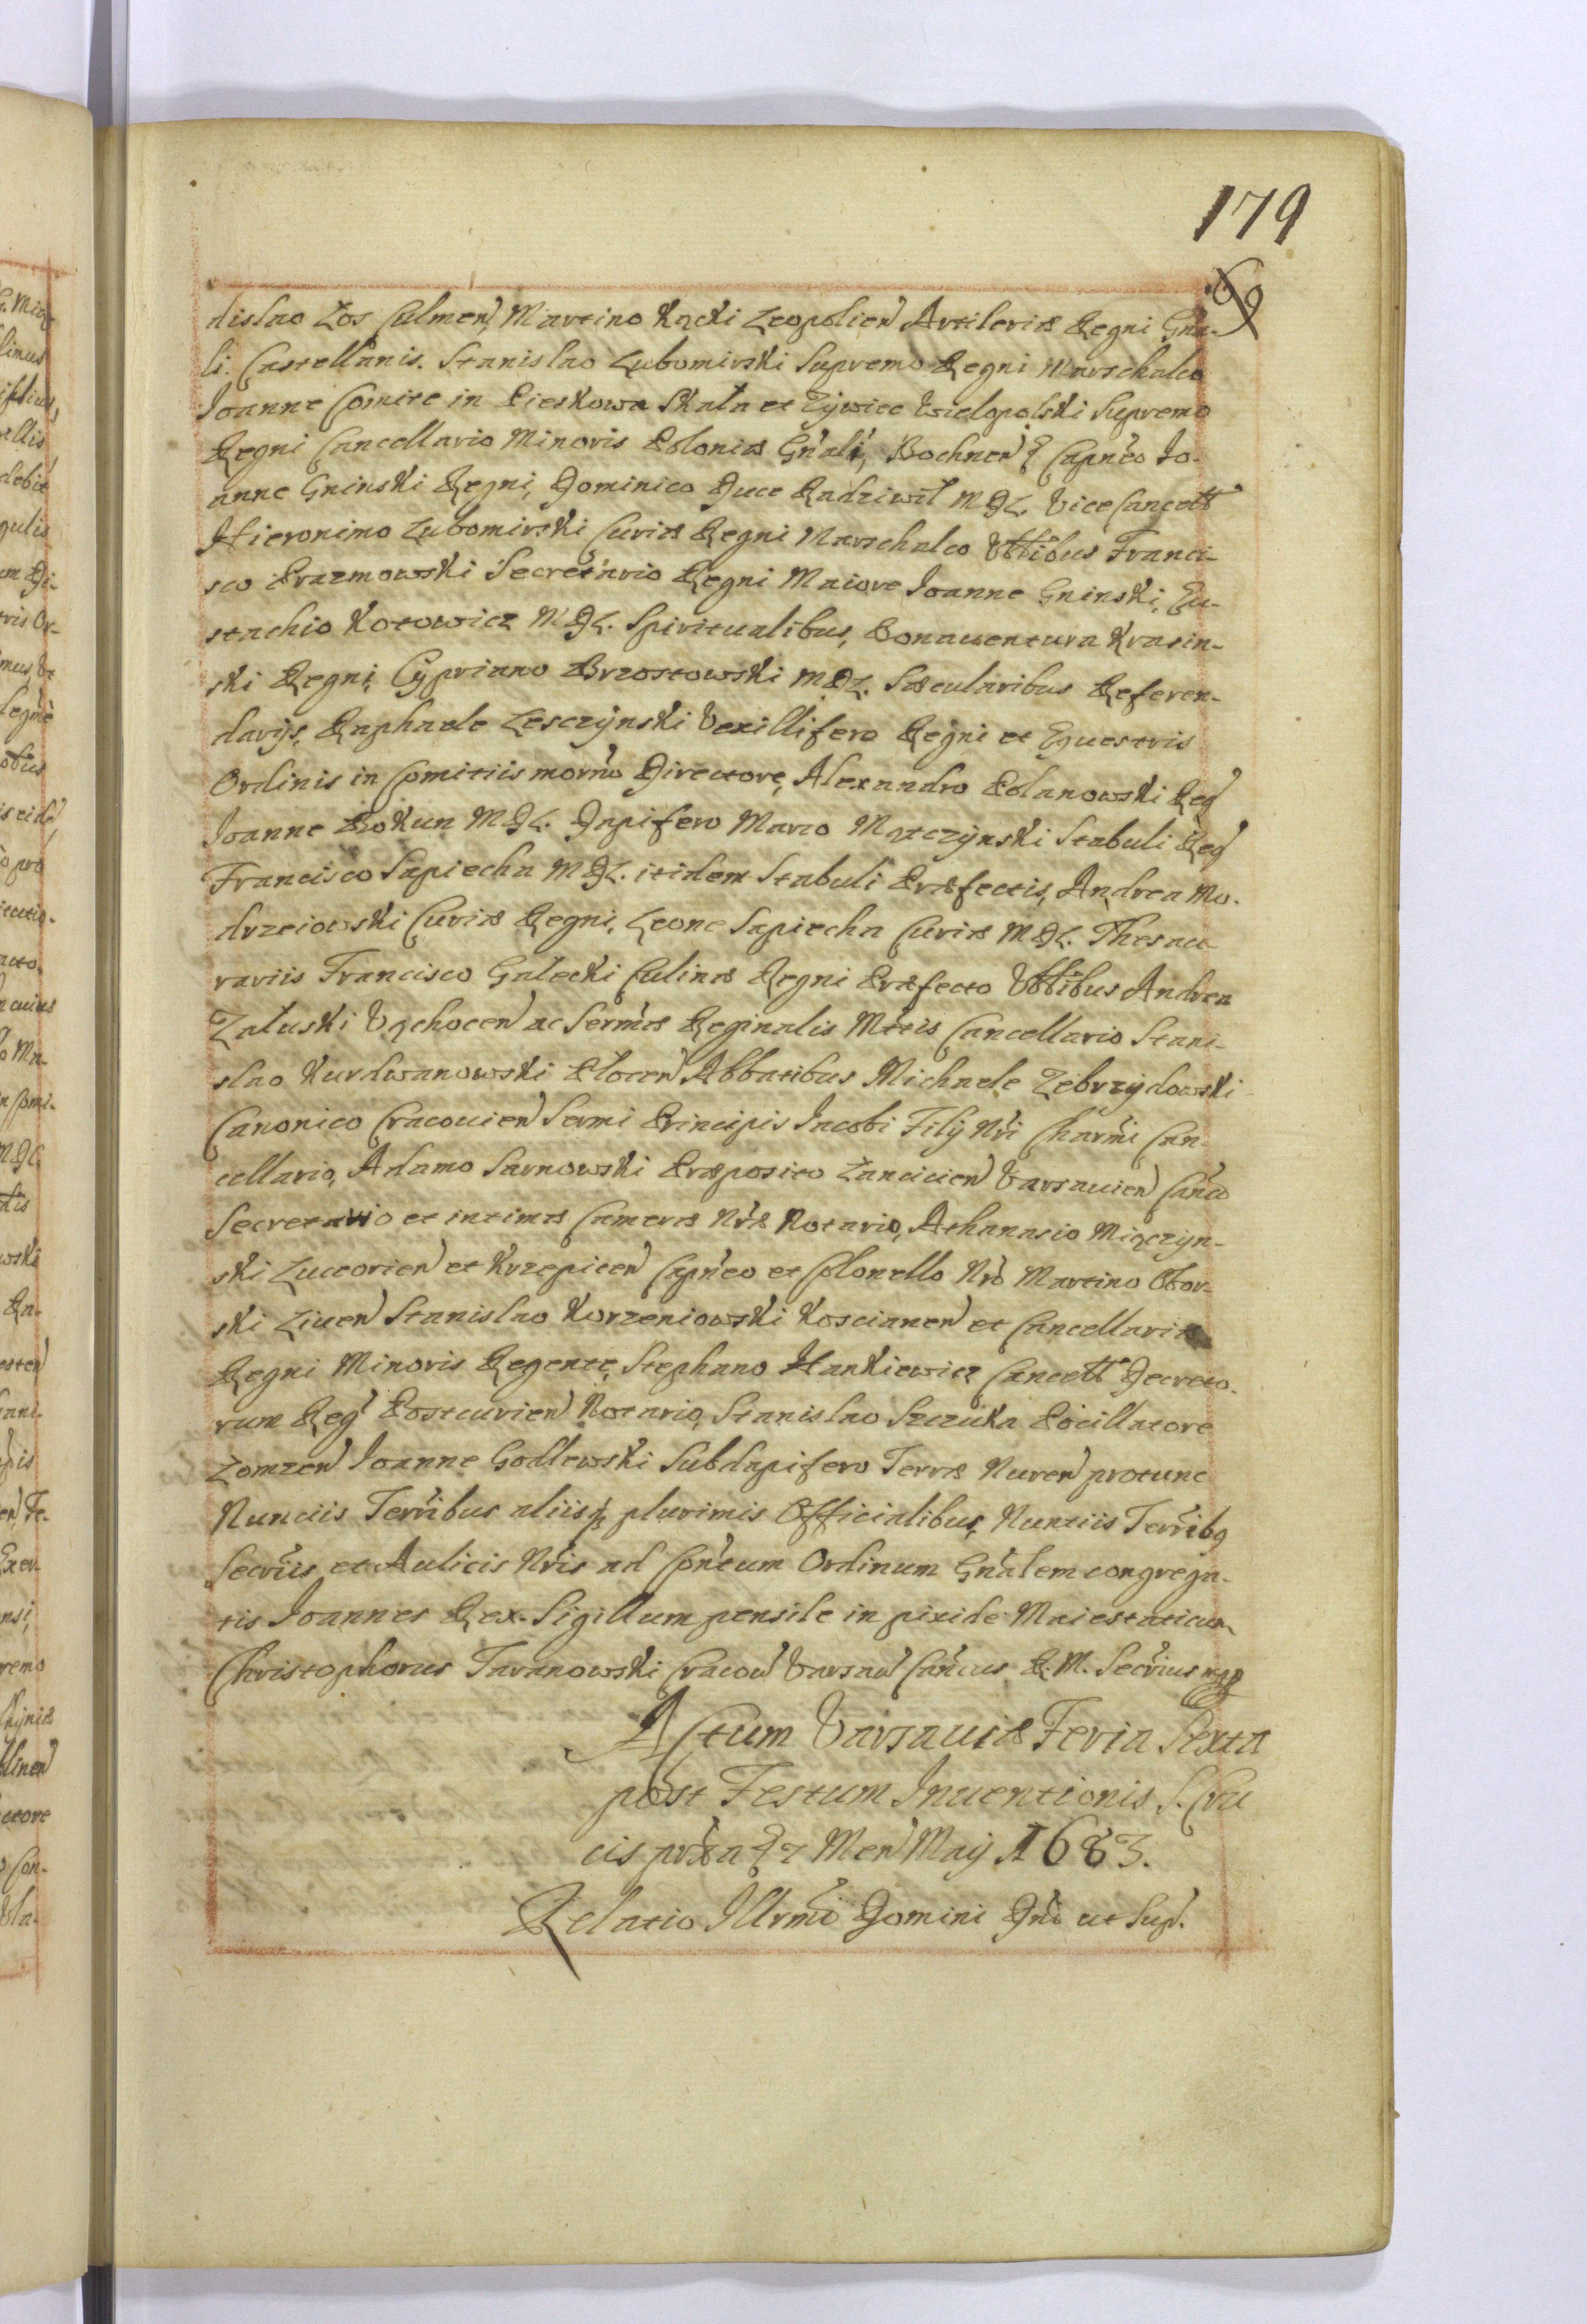 179
69
dislao Łos Culmen, Martino Kącki Leopolien Artileriæ Regni Gña-
li. Castellanis. Stanislao Lubomirski Supremo Regni Marschalco
Joanne Comite in Pieskowa Skała et Zÿwiec Wielopolski Supremo
Regni Cancellario Minoris Poloniæ Gñali, Bochnen Capñeo Jo-
anne Gninski Regni, Dominico Duce Radziwił MDL. Vice Cancell
Hieronimo Lubomirski Curiæ Regni Marschalco Utribus Franci-
sco Prazmowski Secretario Regni Maiore Joanne Gninski, Eu-
stachio Kotowicz MDL. Spiritualibus, Bonauentura Krasin-
ski Regni, Cÿpriano Brzostowski MDL. Sæcularibus Referen-
darijs, Raphaele Lesczÿnski Vexillifero Regni et Equestris
Ordinis in Comitiis morño Directore, Alexandro Polanowski Reg
Joanne Bokun MDL. Dapifero Marco Mątczÿnski Stabuli Reg
Francisco Sapiecha MDL. itidem Stabuli Præfectis, Andrea Mo-
drzeiowski Curiæ Regni, Leone Sapiecha Curiæ MDL. Thesau-
rariis Francisco Gałecki Culinæ Regni Præfecto Utribus Andrea
Załuski Vąchocen ac Sermæ Reginalis Mttis Cancellario Stani-
slao Kurdwanowski Plocen Abbatibus Michaele Zebrzÿdowski
Canonico Cracouien Sermi Principis Jacobi Filÿ Nri Charmi Can-
cellario, Adamo Sarnowski Præposito Lancicien Varsauien Cañco
Secretario et intimæ Cameræ Nræ Notario, Athanasio Miączÿn-
ski Luceorien et Krzepicen Capñeo et Colonello Nro Martino Obor-
ski Liuen Stanislao Korzeniowski Koscianen et Cancellariæ
Regni Minoris Regente, Stephano Hankiewicz Cancell Decreto-
rum Reg Postcurien Notario, Stanislao Szczuka Pocillatore
Lomzen Joanne Godlewski Subdapifero Terræ Nuren protunc
Nunciis Terribus aliisq plurimis Officialibus, Nuntiis Terribq
Secriis, et Aulicis Nris ad Cõnuum Ordinum Gñalem congrega-
tis Joannes Rex. Sigillum pensile in pixide Maiestaticum
Christophorus Taranowski Cracou Varsau Cañcus R. M. Secrius mpp
Actum Varsauiæ Feria Sexta
post Festum Inuentionis S. Cru
cis prõxa 7 Men Maÿ 1683.
Relatio Illrmi Domini Dñi ut Sup.